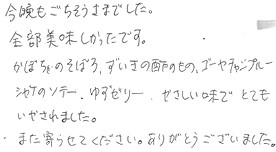 今晩もごちそうさまでした。
全部美味しかったです。
かぼちゃのそぼろ、ずいきの酢のもの、ゴーヤチャンプルー
シャケのソテー、ゆずゼリー、やさしい味でとても
いやされました。
また寄らせてください。ありがとうございました。